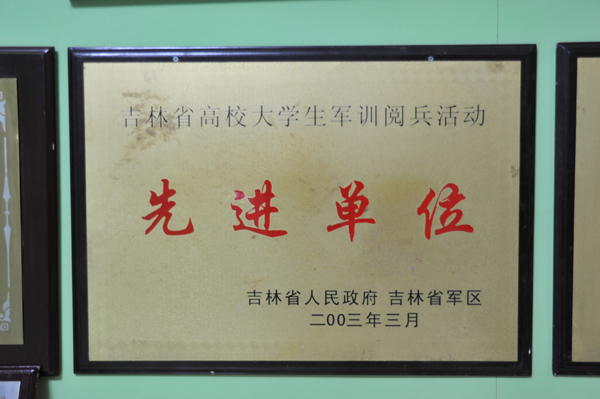 吉林省高校大学生军训阅兵活动
先进单位
吉林省人民政府 吉林省军区
二00三年三月